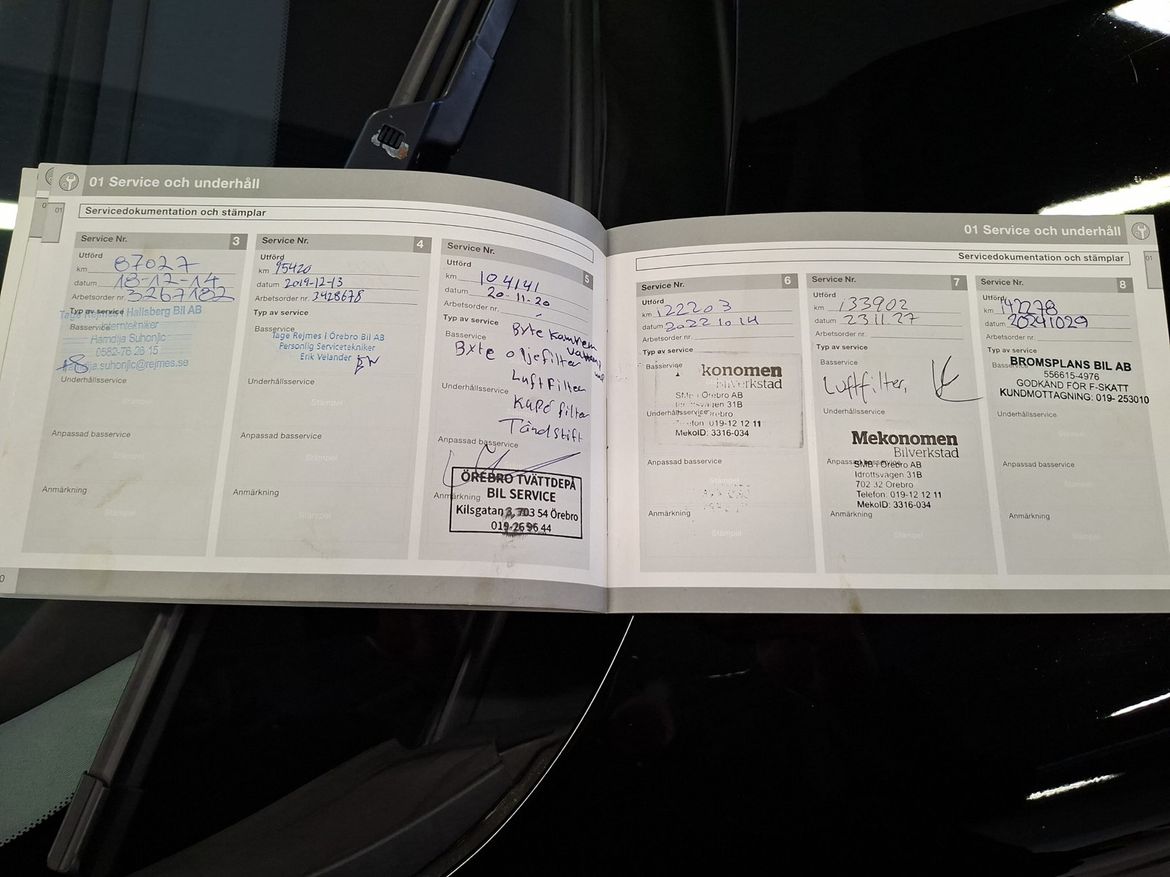 01 Service och underhåll
Servicedokumentation och stämplar
Service Nr. 3
Utförd
km 87027
datum 18-12-14
Arbetsorder nr. 3267182
Typ av service
Tage Rejmes i Hallsberg Bil AB
Basservice
Hamdija Suhonjic
0582-76 28 15
suhonjic@rejmes.se
Underhållsservice
Stämpel
Anpassad basservice
Stämpel
Anmärkning
Stämpel
Service Nr. 4
Utförd
km 95420
datum 2019-12-13
Arbetsorder nr. 3428678
Typ av service
Basservice
Tage Rejmes i Örebro Bil AB
Personlig Servicetekniker
Erik Velander
Underhållsservice
Stämpel
Anpassad basservice
Stämpel
Anmärkning
Stämpel
Service Nr. 5
Utförd
km 104141
datum 20-11-20
Arbetsorder nr.
Typ av service
Basservice
Byte kamrem
Byte oljefilter
Luftfilter
Underhållsservice
Kupé filter
Tändstift
Anpassad basservice
ÖREBRO TVÄTTDEPÅ
BIL SERVICE
Anmärkning
Kilsgatan 3, 703 54 Örebro
019-26 96 44
01 Service och underhåll
Servicedokumentation och stämplar
Service Nr. 6
Utförd
km 122203
datum 2022 10 14
Arbetsorder nr.
Typ av service
Basservice
konomen
Bilverkstad
SMB i Örebro AB
31B
Underhållsservice
Telefon: 019-12 12 11
MekoID: 3316-034
Anpassad basservice
Stämpel
Anmärkning
Stämpel
Service Nr. 7
Utförd
km 133902
datum 23 11 27
Arbetsorder nr.
Typ av service
Basservice
Luftfilter,
Underhållsservice
Mekonomen
Bilverkstad
Anpassad basservice
SMB i Örebro AB
Idrottsvägen 31B
702 32 Örebro
Telefon: 019-12 12 11
MekoID: 3316-034
Anmärkning
Stämpel
Service Nr. 8
Utförd
km 142278
datum 20241029
Arbetsorder nr.
Typ av service
Basservice
BROMSPLANS BIL AB
556615-4976
GODKÄND FÖR F-SKATT
KUNDMOTTAGNING: 019- 253010
Underhållsservice
Anpassad basservice
Anmärkning
Stämpel